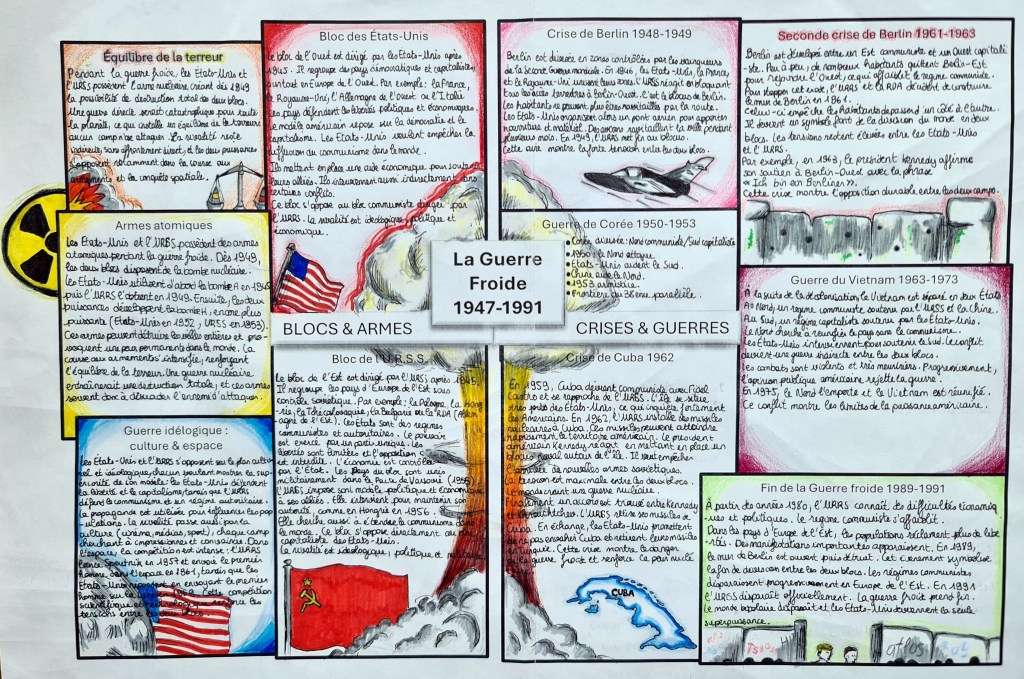 La Guerre
Froide
1947-1991
BLOCS & ARMES
CRISES & GUERRES
Équilibre de la terreur
Pendant la guerre froide, les Etats-Unis et
l'URSS possèdent l'arme nucléaire, créant dès 1949
la possibilité de destruction totale des deux blocs.
Une guerre directe serait catastrophique pour toute
la planète, ce qui installe un équilibre de la terreur :
aucun camp n'ose attaquer. La rivalité reste
indirecte, sans affrontement direct, et les deux puissances
s'opposent notamment dans la course aux
armements et la conquête spatiale.
Armes atomiques
Les Etats-Unis et l'URSS possèdent des armes
atomiques pendant la guerre froide. Dès 1949,
les deux blocs disposent de la bombe nucléaire.
Les Etats-Unis utilisent d'abord la bombe A en 1945
puis l'URSS l'obtient en 1949. Ensuite, les deux
puissances développent la bombe H, encore plus
puissante (Etats-Unis en 1952, URSS en 1953).
Ces armes peuvent détruire des villes entières et pro-
voquent une peur permanente dans le monde. La
course aux armements s'intensifie, renforçant
l'équilibre de la terreur. Une guerre nucléaire
entraînerait une destruction totale, et ces armes
servent donc à dissuader l'ennemi d'attaquer.
Guerre idélogique :
culture & espace
Les Etats-Unis et l'URSS s'opposent sur le plan cultu-
rel et idéologique, chacun voulant montrer la sup-
ériorité de son modèle. Les Etats-Unis défendent
la liberté et le capitalisme, tandis que l'URSS
défend le communisme et un régime autoritaire.
La propagande est utilisée pour influencer les pop
-ulations. La rivalité passe aussi par la
culture (cinéma, médias, sport), chaque camp
cherchant à impressionner et convaincre. Dans
l'espace, la compétition est intense : l'URSS
lance Spoutnik en 1957 et envoie le premier
homme dans l'espace en 1961, tandis que les
Etats-Unis répondent en envoyant le premier
homme sur la Lune en 1969. Cette compétition
scientifique et technologique renforce les
tensions entre les deux blocs.
Bloc des États-Unis
Le bloc de l'Ouest est dirigé par les Etats-Unis après
1945. Il regroupe des pays démocratiques et capitalistes,
surtout en Europe de l'Ouest. Par exemple : la France,
le Royaume-Uni, l'Allemagne de l'Ouest ou l'Italie.
Les pays défendent les libertés politiques et économiques.
Le modèle américain repose sur la démocratie et le
capitalisme. Les Etats-Unis veulent empêcher la
diffusion du communisme dans le monde.
Ils mettent en place une aide économique pour soutenir
leurs alliés. Ils interviennent aussi indirectement dans
certains conflits.
Ce bloc s'oppose au bloc communiste dirigé par
l'URSS. La rivalité est idéologique, politique et
économique.
Bloc de l'U.R.S.S.
Le bloc de l'Est est dirigé par l'URSS après 1945.
Il regroupe les pays d'Europe de l'Est sous
contrôle soviétique. Par exemple : la Pologne, la Hong
-rie, la Tchécoslovaquie, la Bulgarie ou la RDA (Allem
-agne de l'Est). Ces Etats sont des régimes
communistes et autoritaires. Le pouvoir
est exercé par un parti unique. Les
libertés sont limitées et l'opposition
est interdite. L'économie est contrôlée
par l'Etat. Les pays du bloc sont unis
militairement dans le Pacte de Varsovie (1955).
L'URSS impose son modèle politique et économique
à ses alliés. Elle intervient pour maintenir son
autorité, comme en Hongrie en 1956.
Elle cherche aussi à étendre le communisme dans
le monde. Ce bloc s'oppose directement au bloc
capitaliste des Etats-Unis.
La rivalité est idéologique, politique et militaire.
Crise de Berlin 1948-1949
Berlin est divisée en zones contrôlées par les vainqueurs
de la Seconde Guerre mondiale. En 1948, les Etats-Unis, la France,
et le Royaume-Uni unissent leurs zones. L'URSS réagit en bloquant
tous les accès terrestres à Berlin-Ouest. C'est le blocus de Berlin.
Les habitants ne peuvent plus être ravitaillés par la route.
Les Etats-Unis organisent alors un pont aérien pour apporter
nourriture et matériel. Des avions ravitaillent la ville pendant
plusieurs mois. En 1949, l'URSS met fin au blocus.
Cette crise montre la forte tension entre les deux blocs.
Guerre de Corée 1950-1953
• Corée divisée : Nord communiste/Sud capitaliste
• 1950 : le Nord attaque.
• Etats-Unis aident le Sud.
• Chine aide le Nord.
• 1953 armistice.
• Frontière du 38ème parallèle.
Crise de Cuba 1962
En 1959, Cuba devient communiste avec Fidel
Castro et se rapproche de l'URSS. L'île se situe
très près des Etats-Unis, ce qui inquiète fortement
les Américains. En 1962, l'URSS installe des missiles
nucléaires à Cuba. Ces missiles peuvent atteindre
rapidement le territoire américain. Le président
américain Kennedy réagit en mettant en place un
blocus naval autour de l'île. Il veut empêcher
l'arrivée de nouvelles armes soviétiques.
La tension est maximale entre les deux blocs.
Le monde craint une guerre nucléaire.
Finalement, un accord est trouvé entre Kennedy
et Khrouchtchev. L'URSS retire ses missiles de
Cuba. En échange, les Etats-Unis promettent
de ne pas envahir Cuba et retirent leurs missiles
en Turquie. Cette crise montre le danger
de la guerre froide et renforce la peur nuclé
CUBA
Seconde crise de Berlin 1961-1963
Berlin est développé entre un Est communiste et un Ouest capitali
-ste. Peu à peu, de nombreux habitants quittent Berlin-Est
pour rejoindre l'Ouest, ce qui affaiblit le régime communiste.
Pour stopper cet exode, l'URSS et la RDA décident de construire
le mur de Berlin en 1961.
Celui-ci empêche les habitants de passer d'un côté à l'autre.
Il devient un symbole fort de la division du monde en deux
blocs. Les tensions restent élevées entre les Etats-Unis
et l'URSS.
Par exemple, en 1963, le président Kennedy affirme
son soutien à Berlin-Ouest avec la phrase
« Ich bin ein Berliner ».
Cette crise montre l'opposition durable entre les deux camps.
Guerre du Vietnam 1963-1973
À la suite de la décolonisation, le Vietnam est séparé en deux États.
Au Nord, un régime communiste soutenu par l'URSS et la Chine.
Au Sud, un régime capitaliste soutenu par les Etats-Unis.
Le Nord cherche à réunifier le pays sous le communisme.
Les Etats-Unis interviennent pour soutenir le Sud. Le conflit
devient une guerre indirecte entre les deux blocs.
Les combats sont violents et très meurtriers. Progressivement,
l'opinion publique américaine rejette la guerre.
En 1975, le Nord l'emporte et le Vietnam est réunifié.
Ce conflit montre les limites de la puissance américaine.
Fin de la Guerre froide 1989-1991
À partir des années 1980, l'URSS connaît des difficultés économiq
-ues et politiques. Le régime communiste s'affaiblit.
Dans les pays d'Europe de l'Est, les populations réclament plus de libe
-rtés. Des manifestations importantes apparaissent. En 1989,
le mur de Berlin est ouvert puis détruit. Cet événement symbolise
la fin de la division entre les deux blocs. Les régimes communistes
disparaissent progressivement en Europe de l'Est. En 1991
l'URSS disparaît officiellement. La guerre froide prend fin.
Le monde bipolaire disparaît et les Etats-Unis deviennent la seule
superpuissance.